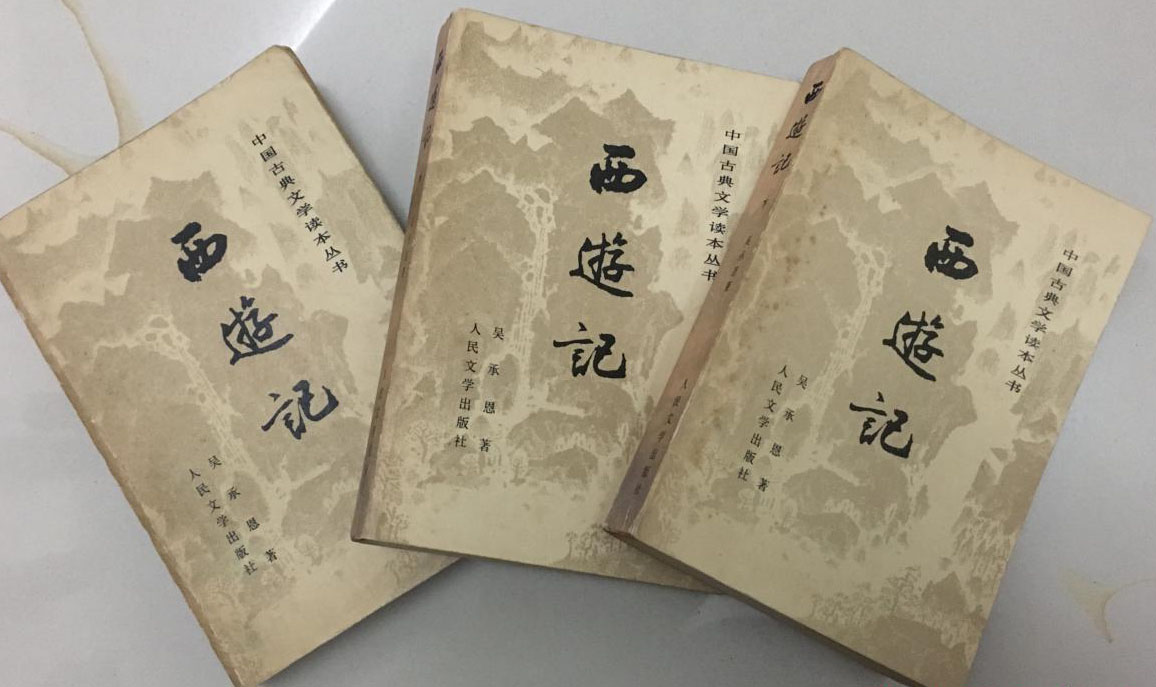 中国古典文学读本丛书
西遊記
吴承恩著
人民文学出版社
西遊記
中国古典文学读本丛书
西遊記
吴承恩著
人民文学出版社
西遊記
人民文学出版社
中国古典文学读本丛书
西遊記
吴承恩著
人民文学出版社